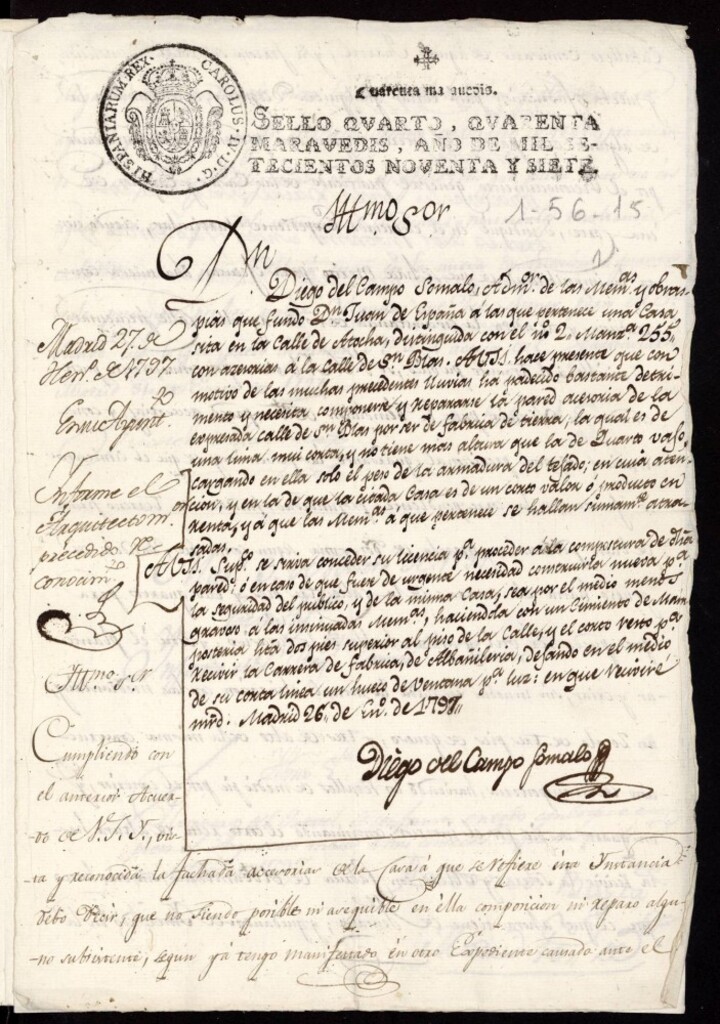 HISPANIARUM REX. CAROLUS. IV. D. G.
Quarenta maravedis.
SELLO QVARTO, QVARENTA
MARAVEDIS, AÑO DE MIL SE-
TECIENTOS NOVENTA Y SIETE.
Illmo Sor
1-56-15
Dn
Diego del Campo Somalo, Admr. de las Memas. y obras
pias que fundo Dn Juan de España á las que pertenece una Casa
sita en la Calle de Atocha, distinguida con el nº 2. Manza. 255.
con accesorias á la Calle de Sn Blas. A VSI. hace presente que con
motivo de las muchas precedentes lluvias há padecido bastante detri-
mento y necesita componerse y repararse la pared acesoria de la
expresada calle de Sn Blas por ser de fabrica de tierra, la qual es de
una linea mui corta, y no tiene mas altura que la de Quarto vajo,
cargando en ella solo el peso de la armadura del tejado; en cuia aten-
cion, y en la de que la citada Casa es de un corto valor ó producto en
renta, y á que las Memas. á que pertenece se hallan sumamte. atra-
sadas.
A VSI. Supca. se sirva conceder su licencia pa. proceder á la compostura de dha
pared: ó en caso de que fuere de urgente necesidad construirla nueva pa.
la seguridad del publico, y de la misma Casa, sea por el medio menos
gravoso á las insinuadas Memas, haciendola con un Cimiento de Mam
posteria hta dos pies superior al piso de la Calle, y el corto resto pa.
recivir la Carrera de fabrica, de Albañileria, dejando en el medio
de su corta linea un hueco de Ventana pa. luz: en que reciviré
mrd. Madrid 26,, de Eno. de 1797,,
Diego del Campo Somalo
Madrid 27. de
Hen.º de 1797.
En su Ayuntto.
Ynforme el
Arquitecto m.or
precedido re-
conocimto.
Yllmo. Sr.
Cumpliendo con
el anterior Acuer-
do de V.S.Y., vis-
ta y reconocida la fachada accesoria de la Casa á que se refiere esta Instancia
debo decir, que no siendo posible ni asequible en ella composicion ni reparo algu-
no subsistente, segun ya tengo manifestado en otro Expediente causado ante el